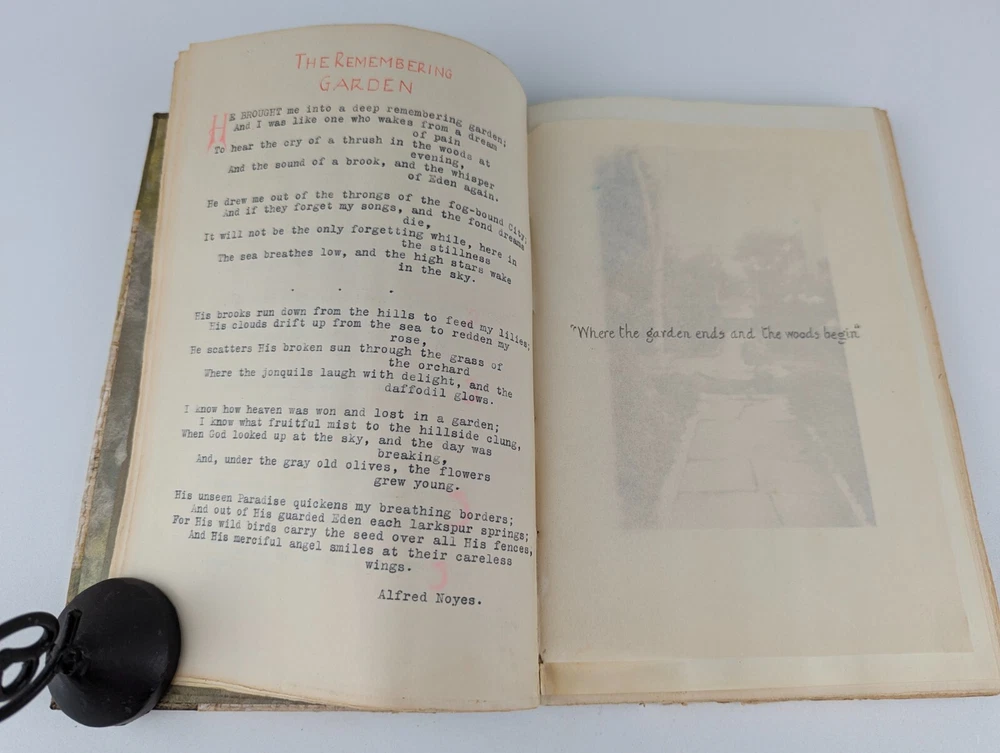 THE REMEMBERING
GARDEN
HE BROUGHT me into a deep remembering garden;
And I was like one who wakes from a dream
of pain
To hear the cry of a thrush in the woods at
evening,
And the sound of a brook, and the whisper
of Eden again.
He drew me out of the throngs of the fog-bound City;
And if they forget my songs, and the fond dreams
die,
It will not be the only forgetting while, here in
the stillness
The sea breathes low, and the high stars wake
in the sky.
. . .
His brooks run down from the hills to feed my lilies;
His clouds drift up from the sea to redden my
rose,
He scatters His broken sun through the grass of
the orchard
Where the jonquils laugh with delight, and the
daffodil glows.
I know how heaven was won and lost in a garden;
I know what fruitful mist to the hillside clung,
When God looked up at the sky, and the day was
breaking,
And, under the gray old olives, the flowers
grew young.
His unseen Paradise quickens my breathing borders;
And out of His guarded Eden each larkspur springs;
For His wild birds carry the seed over all His fences,
And His merciful angel smiles at their careless
wings.
Alfred Noyes.
"Where the garden ends and the woods begin"